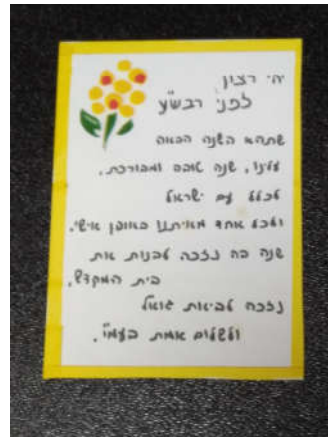 יהי רצון
לפני רבש"ע
שתהא השנה הבאה
עלינו, שנה טובה ומבורכת.
לכלל עם ישראל
ולכל אחד מאיתנו באופן אישי.
שנה בה נזכה לבנות את
בית המקדש.
נזכה לביאת גואל
ולשלום אמת בעמי.